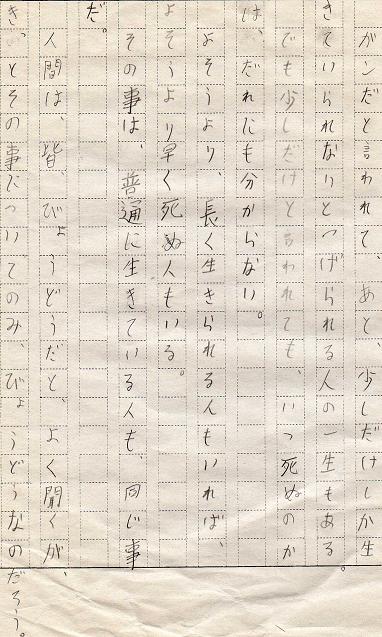 ガンだと言われて、あと、少しだけしか生
きていられないとつげられる人の一生もある。
でも少しだけと言われても、いつ死ぬのか
は、だれにも分からない。
よそうより、長く生きられる人もいれば、
よそうより早く死ぬ人もいる。
その事は、普通に生きている人も、同じ事
だ。
人間は、皆、びょうどうだと、よく聞くが、
きっとその事についてのみ、びょうどうなのだろう。